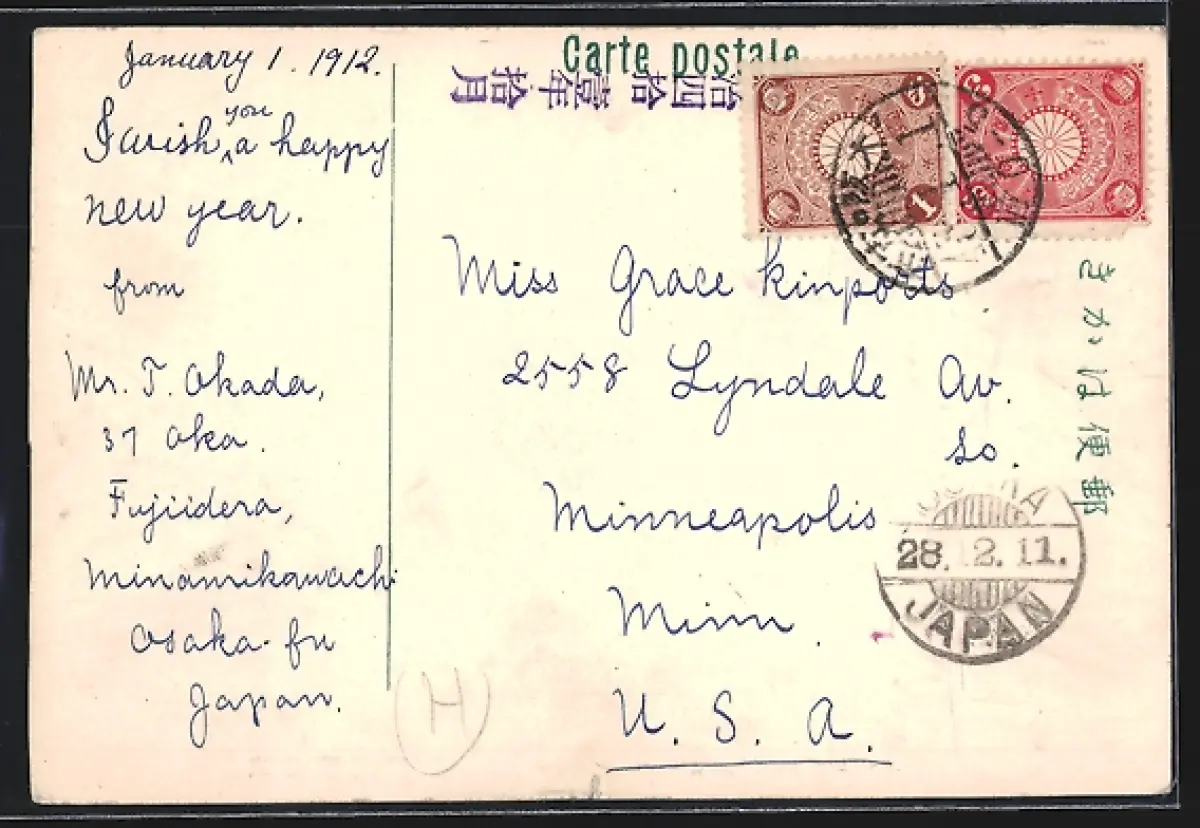 January 1. 1912.
I wish you a happy
new year.
from
Mr. T. Okada,
37 Oka.
Fujiidera,
Minamikawachi
Osaka-fu
Japan.
Carte postale
治四拾
壹年拾月
Miss Grace Kinports
2558 Lyndale Av.
So.
Minneapolis
Minn.
U. S. A.
きかは便郵
1
28.12.11.
JAPAN
H